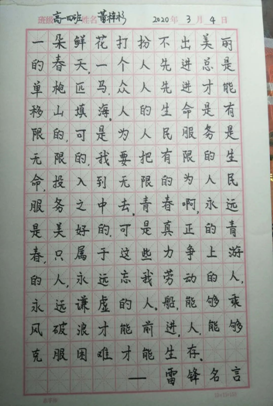 高一四班 姓名 董祥杉 2020年3月4日
一朵鲜花打扮不出美丽
的春天,一个人先进总是
单枪匹马,众人先进才能
移山填海。人的生命是有
限的,可是为人民服务是
无限的,我要把有限的生
命,投入到无限的为人民
服务之中去。青春啊,永远
是美好的,可是真正的青
春,只属于这些力争上游
的人,永远忘我劳动的人,
永远谦虚的人。船,能够乘
风破浪才能前进,人,能够
克服困难才能生存。
——雷锋名言